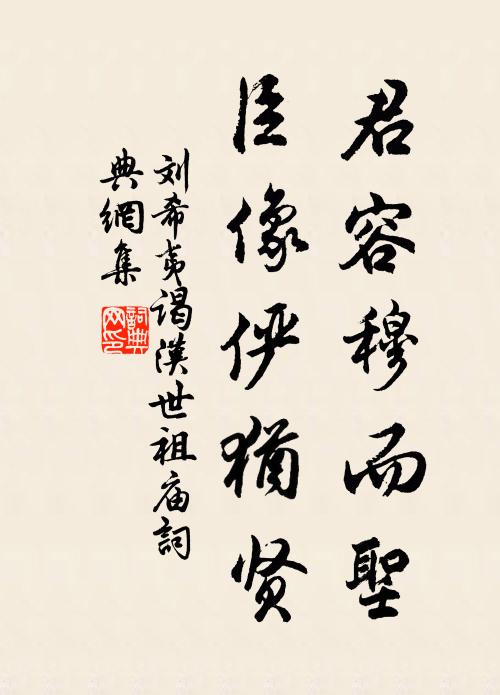 君容穆而聖
臣像俨猶贤
刘希夷谒漢世祖庙詞
典網集
詞典
网印